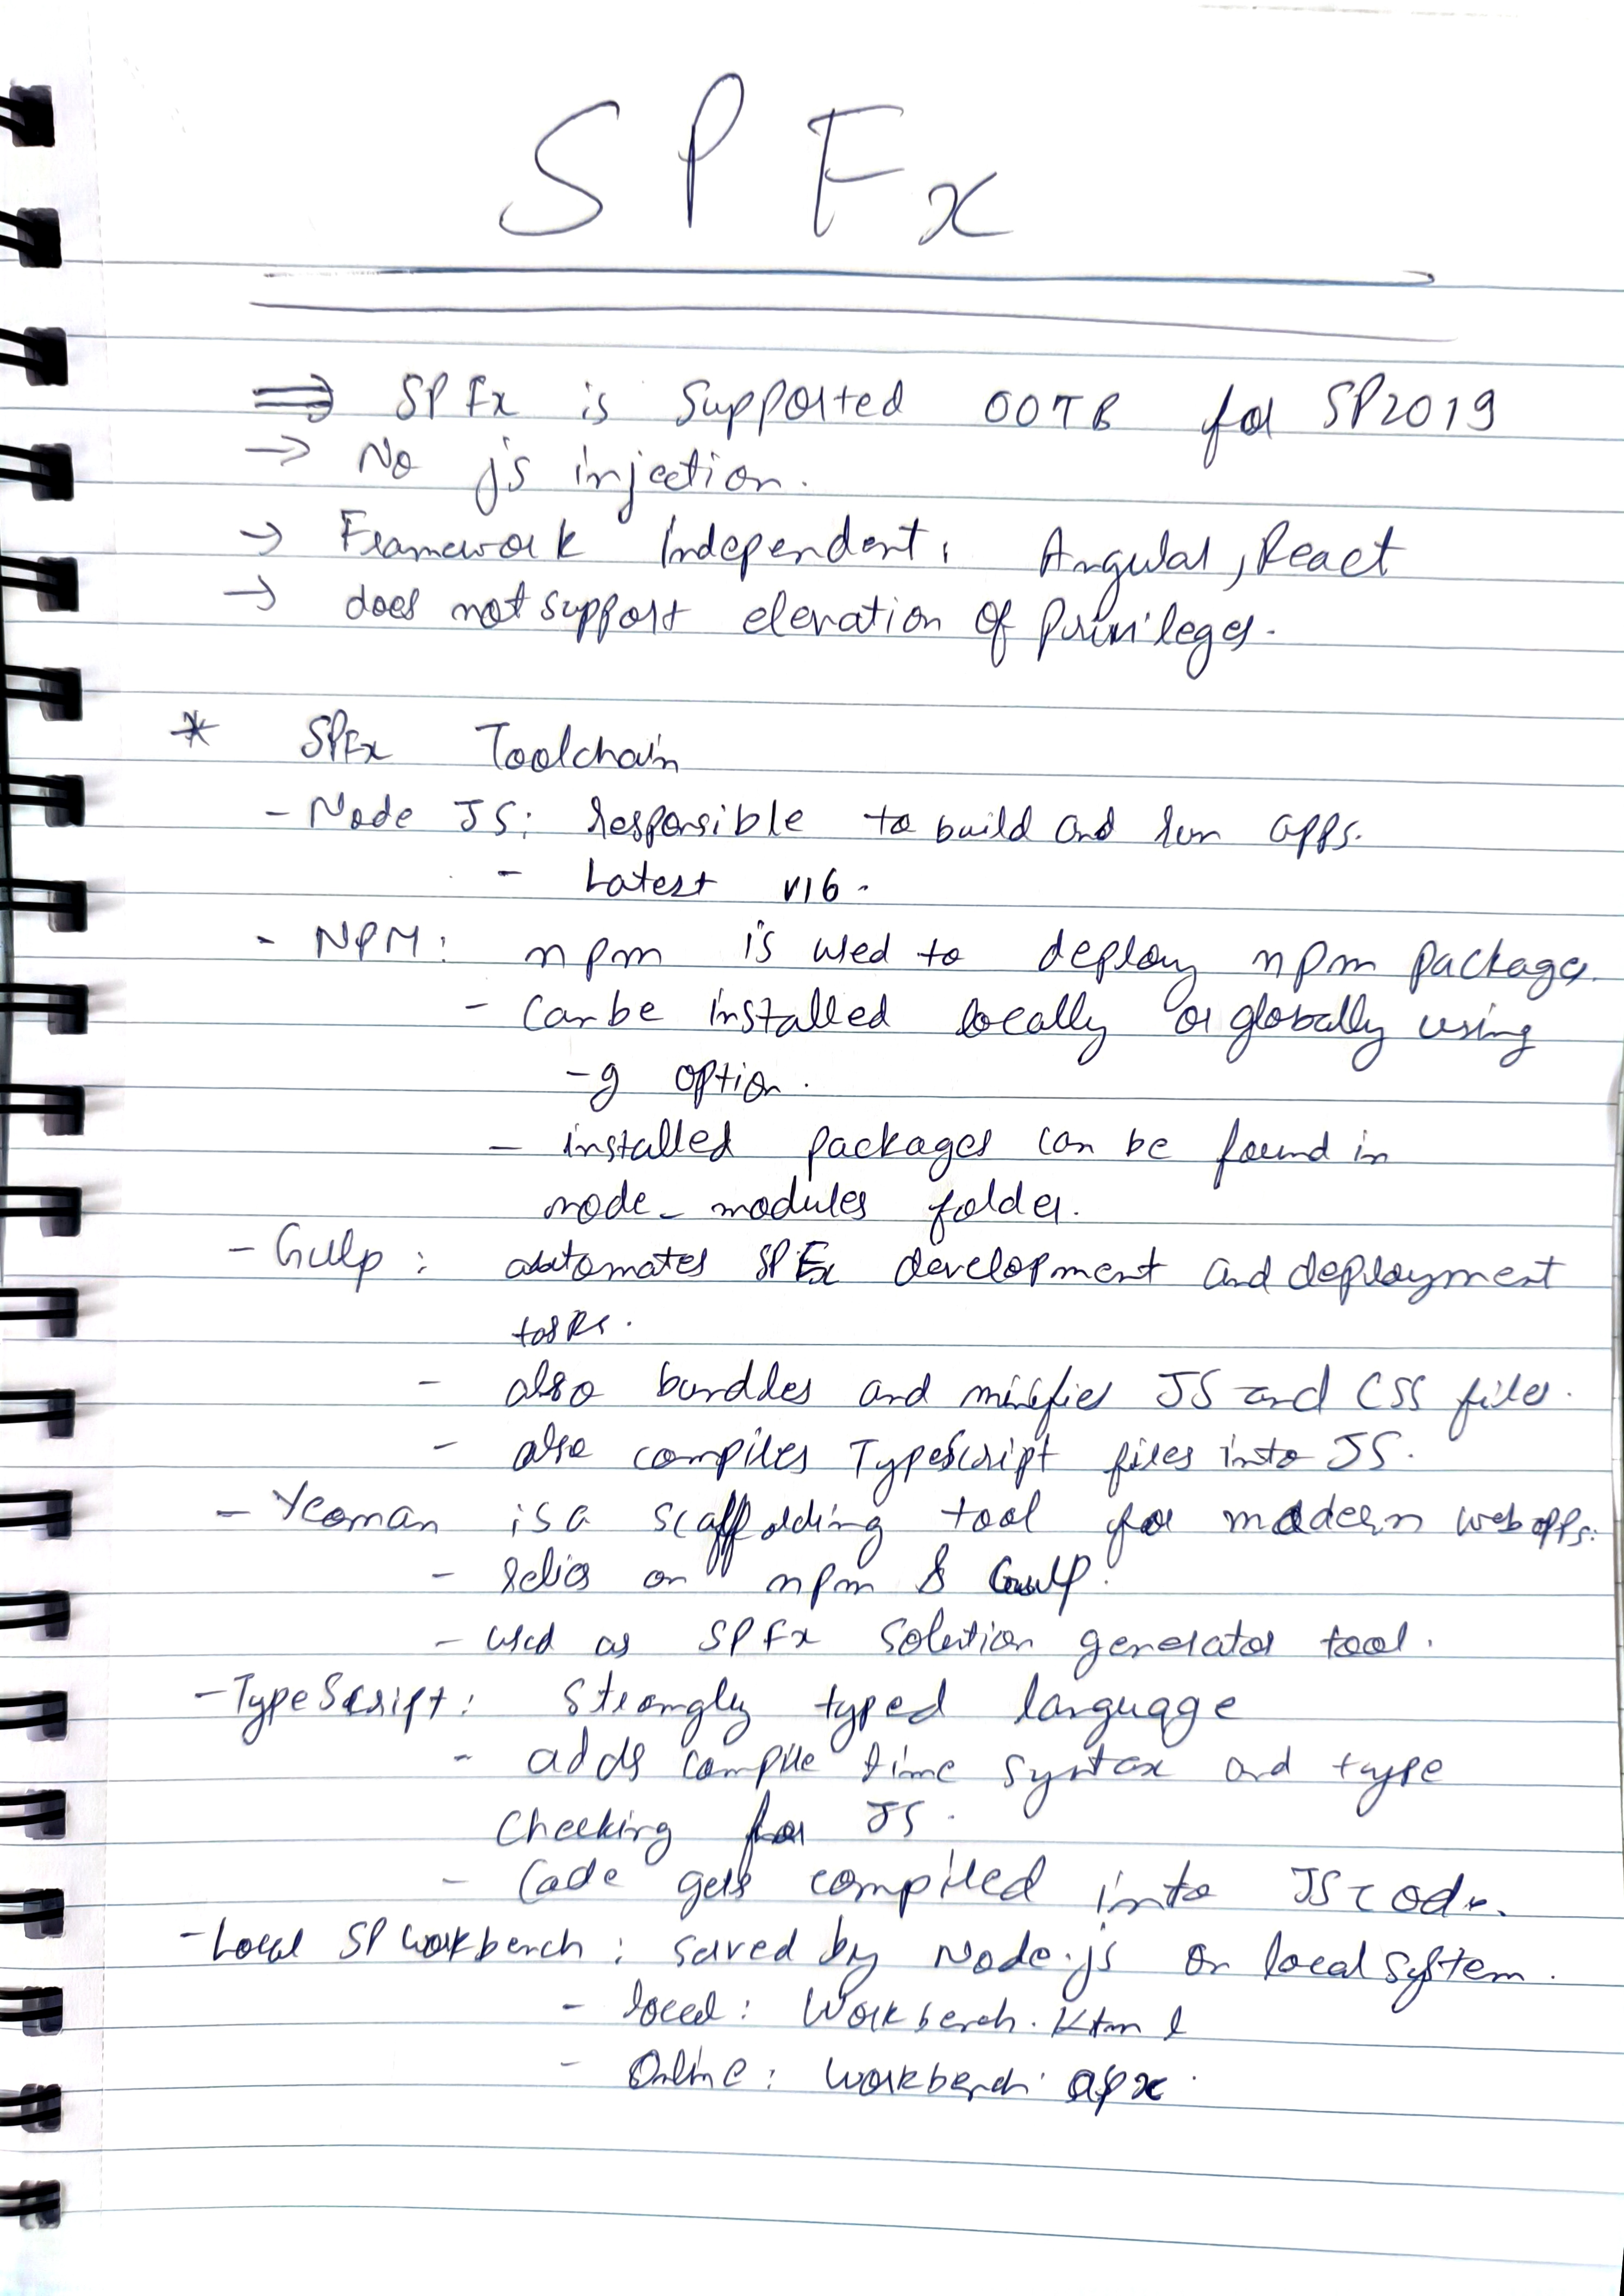 SPFx
⇒ SPFx is supported OOTB for SP2019
→ No js injection.
→ Framework Independent, Angular, React
→ does not support elevation of privileges.
* SPFx Toolchain
- Node JS: responsible to build and run apps.
- Latest v16.
- NPM: npm is used to deploy npm packages.
- can be installed locally or globally using
-g option.
- installed packages can be found in
node_modules folder.
- Gulp: automates SPFx development and deployment
tasks.
- also bundles and minifies JS and CSS files.
- also compiles TypeScript files into JS.
- Yeoman is a scaffolding tool for modern web apps.
- relies on npm & Gulp.
- used as SPFx solution generator tool.
- TypeScript: Strongly typed language
- adds compile time syntax and type
checking for JS.
- Code gets compiled into JS code.
- Local SP workbench: served by Node.js on local system.
- local: Workbench.html
- Online: workbench.aspx.